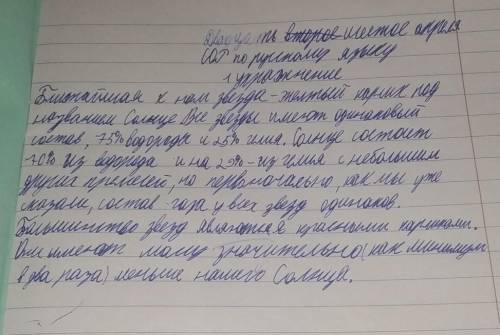 Двадцать второе шестое апреля
СОР по русскому языку
1 упражнение
Ближайшая к нам звезда - желтый карлик под
названием Солнце. Все звезды имеют одинаковый
состав, 75% водорода и 25% гелия. Солнце состоит
70% из водорода и на 29% - из гелия с небольшим
других примесей, но первоначально, как мы уже
сказали, состав газа у всех звезд одинаков.
Большинство звезд являются красными карликами.
Они имеют массу значительно (как минимум
в два раза) меньше нашего Солнца.